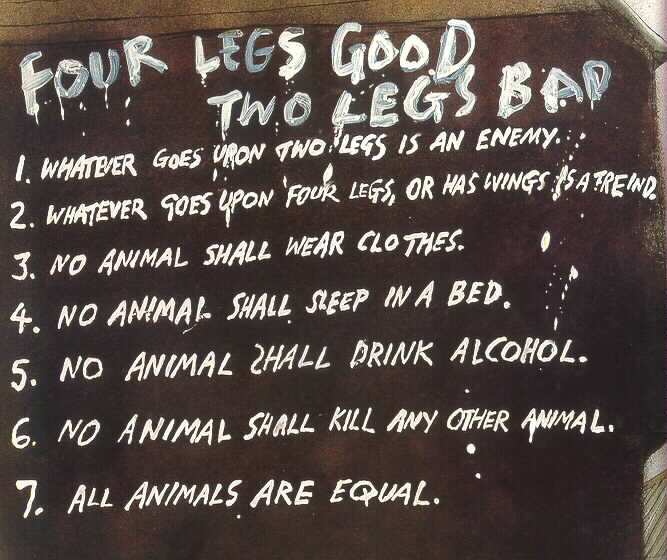 FOUR LEGS GOOD
TWO LEGS BAD
1. WHATEVER GOES UPON TWO LEGS IS AN ENEMY.
2. WHATEVER GOES UPON FOUR LEGS, OR HAS WINGS IS A TREIND.
3. NO ANIMAL SHALL WEAR CLOTHES.
4. NO ANIMAL SHALL SLEEP IN A BED.
5. NO ANIMAL SHALL DRINK ALCOHOL.
6. NO ANIMAL SHALL KILL ANY OTHER ANIMAL.
7. ALL ANIMALS ARE EQUAL.